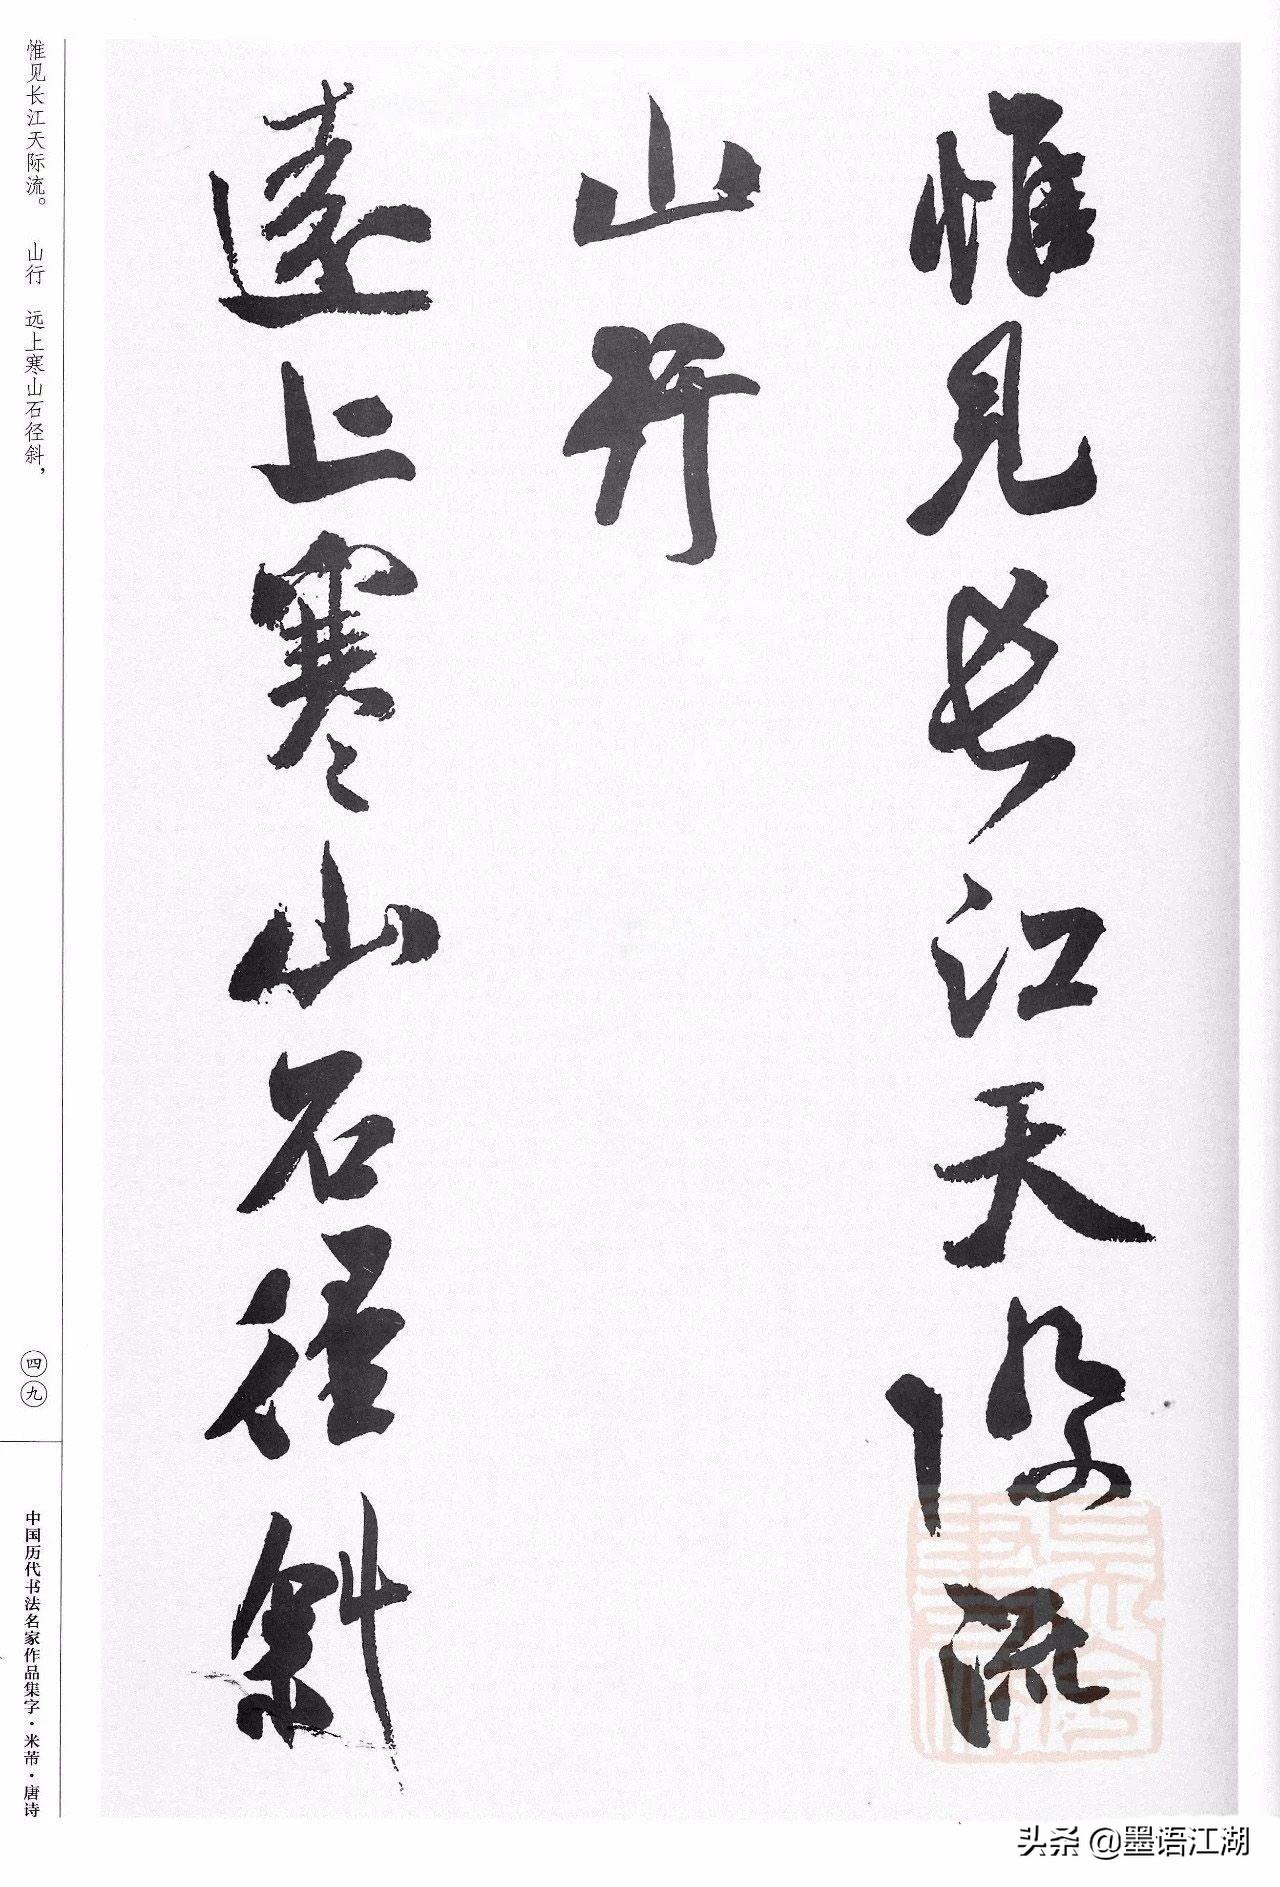 惟見長江天際流
山行
遠上寒山石徑斜
惟见长江天际流。 山行 远上寒山石径斜,
四九
中国历代书法名家作品集字·米芾·唐诗
头条 @墨语江湖